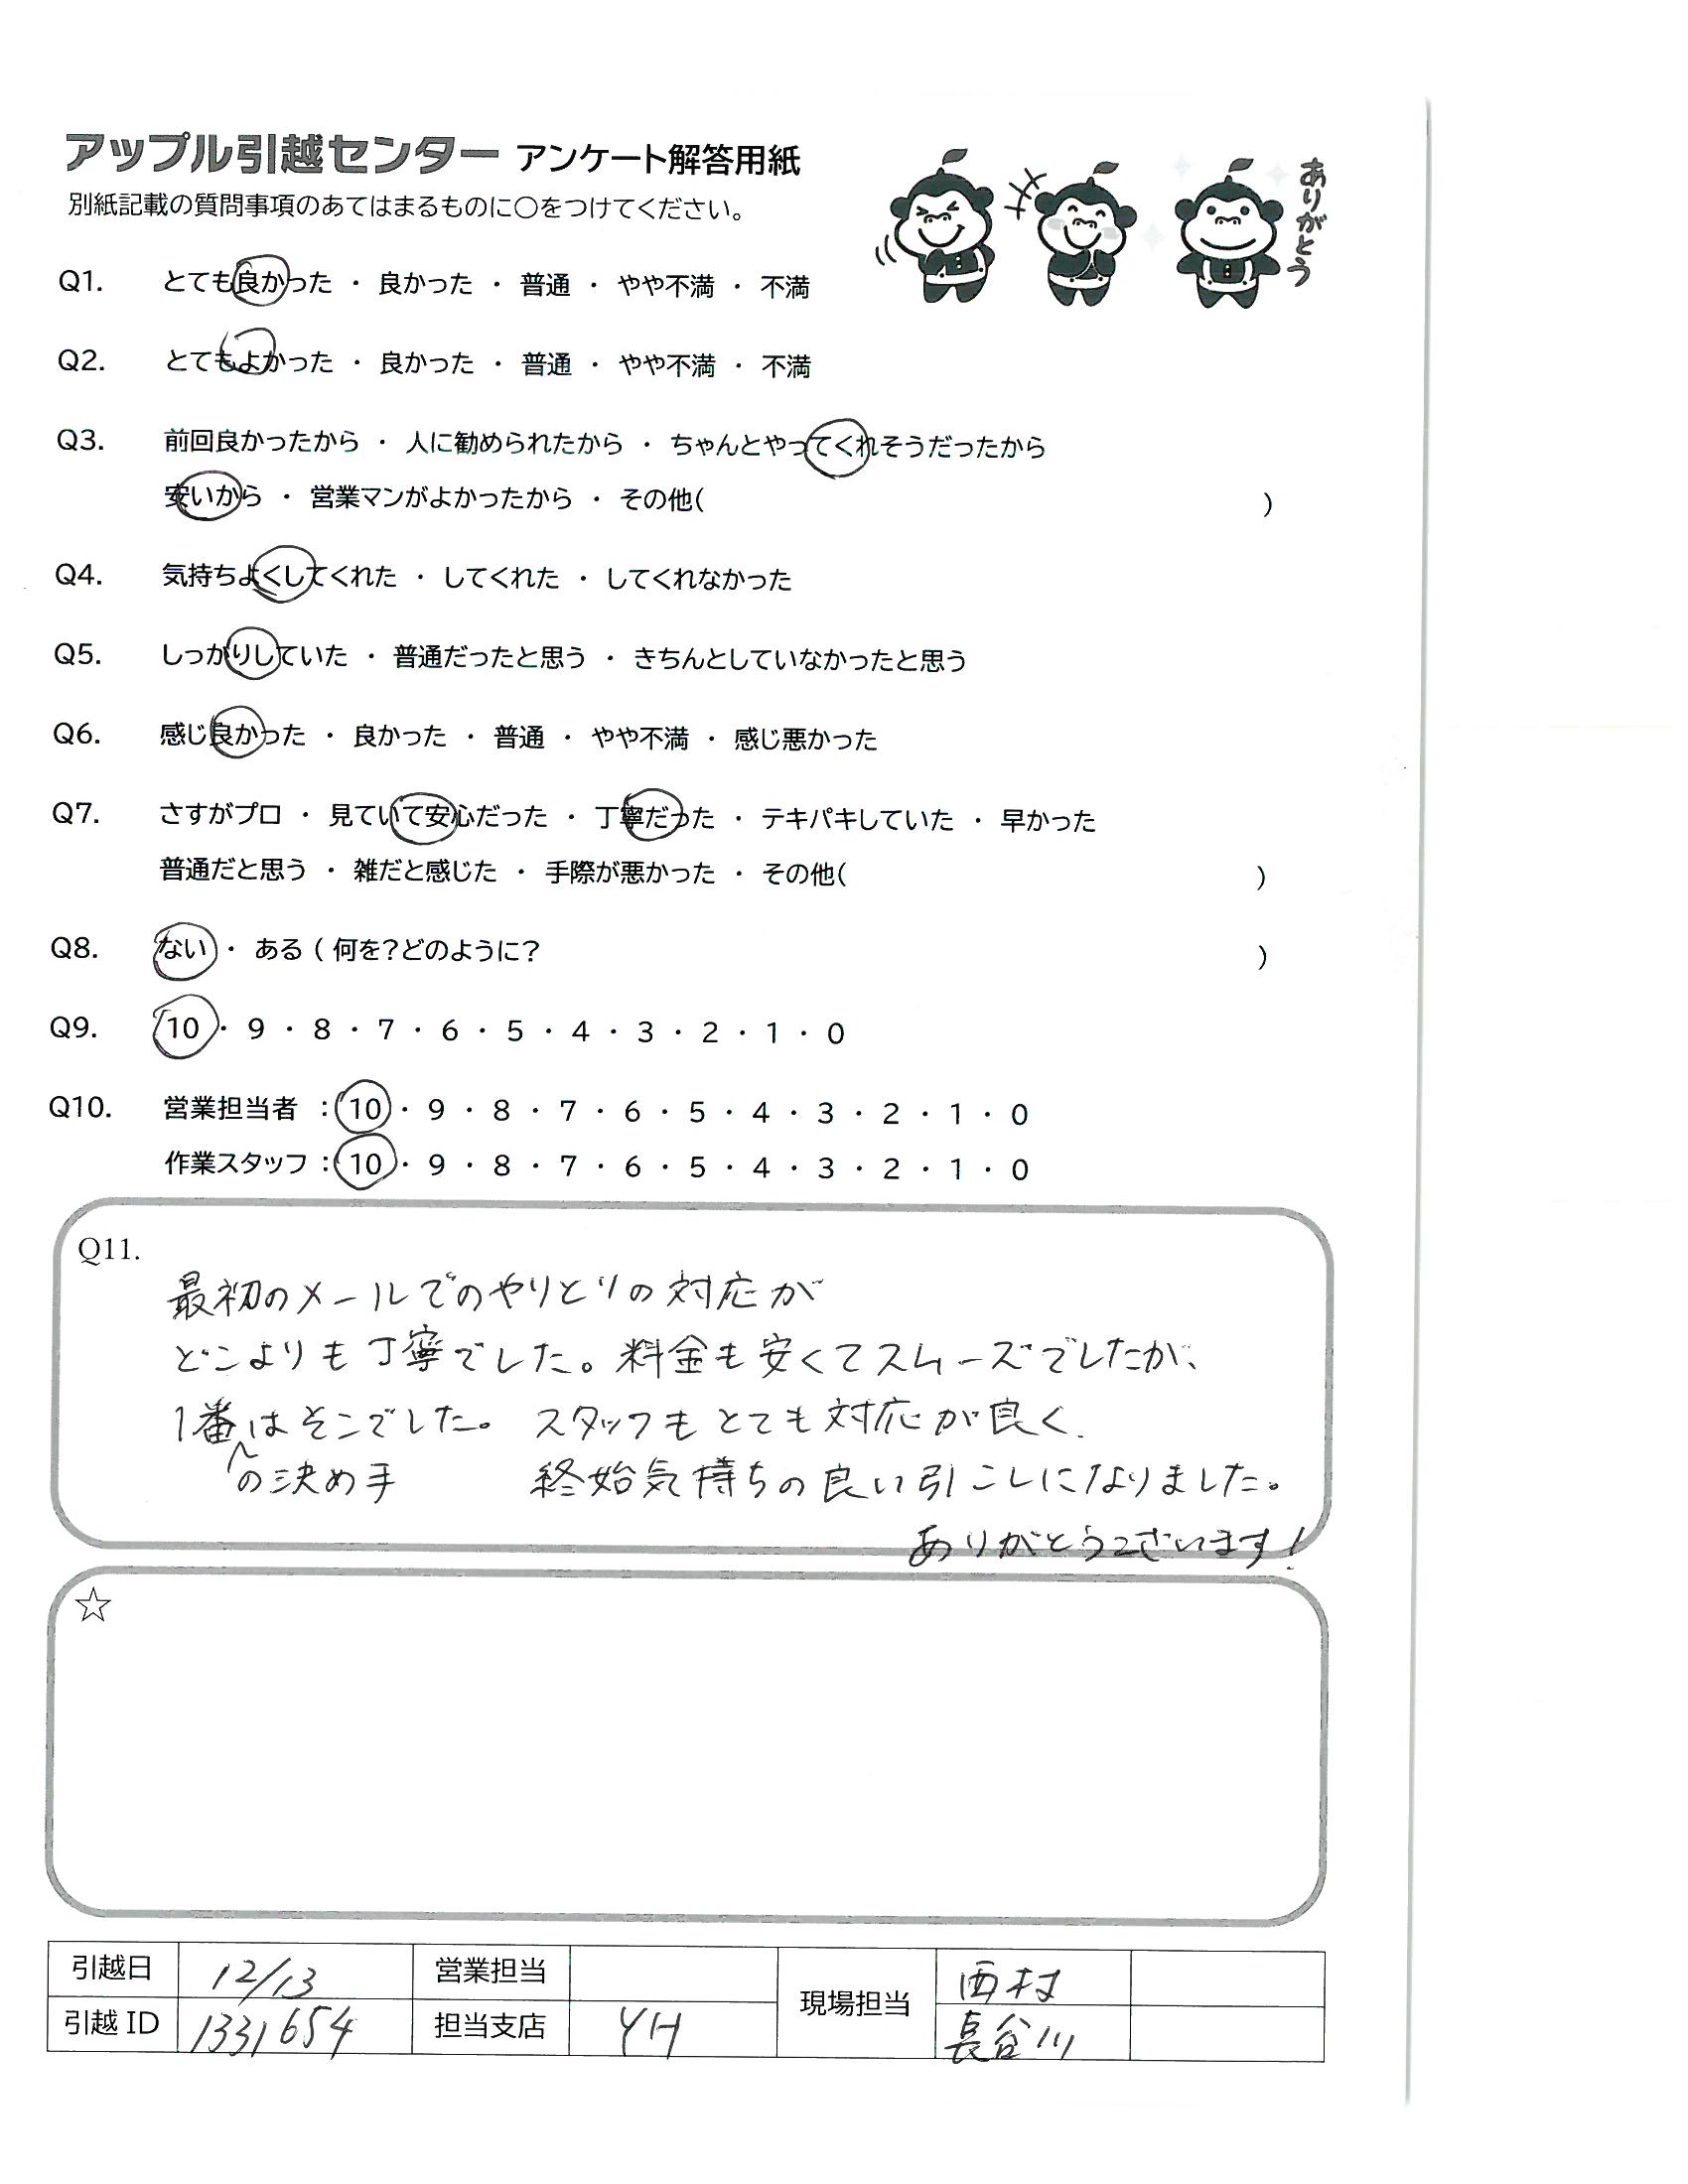 アップル引越センター アンケート解答用紙
別紙記載の質問事項のあてはまるものに〇をつけてください。
ありがとう
Q1. とても良かった ・ 良かった ・ 普通 ・ やや不満 ・ 不満
Q2. とてもよかった ・ 良かった ・ 普通 ・ やや不満 ・ 不満
Q3. 前回良かったから ・ 人に勧められたから ・ ちゃんとやってくれそうだったから
安いから ・ 営業マンがよかったから ・ その他( )
Q4. 気持ちよくしてくれた ・ してくれた ・ してくれなかった
Q5. しっかりしていた ・ 普通だったと思う ・ きちんとしていなかったと思う
Q6. 感じ良かった ・ 良かった ・ 普通 ・ やや不満 ・ 感じ悪かった
Q7. さすがプロ ・ 見ていて安心だった ・ 丁寧だった ・ テキパキしていた ・ 早かった
普通だと思う ・ 雑だと感じた ・ 手際が悪かった ・ その他( )
Q8. ない ・ ある ( 何を?どのように? )
Q9. 10 ・ 9 ・ 8 ・ 7 ・ 6 ・ 5 ・ 4 ・ 3 ・ 2 ・ 1 ・ 0
Q10. 営業担当者 : 10 ・ 9 ・ 8 ・ 7 ・ 6 ・ 5 ・ 4 ・ 3 ・ 2 ・ 1 ・ 0
作業スタッフ : 10 ・ 9 ・ 8 ・ 7 ・ 6 ・ 5 ・ 4 ・ 3 ・ 2 ・ 1 ・ 0
Q11.
最初のメールでのやりとりの対応が
どこよりも丁寧でした。料金も安くてスムーズでしたが、
1番はそこでした。 スタッフもとても対応が良く、
の決め手 終始気持ちの良い引こしになりました。
ありがとうございます!
☆
引越日 12/13 営業担当 現場担当 西村
引越 ID 1331654 担当支店 YH 長谷川